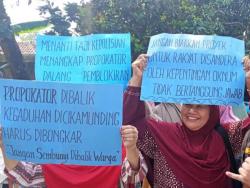 MENANTI TAJI KEPOLISIAN
MENANGKAP PROPOKATOR
DALANG PEMBLOKIRAN
JANGAN BIARKAN PROYEK
UNTUK RAKYAT DISANDERA
OLEH KEPENTINGAN OKNUM
TIDAK BERTANGGUNG JAWAB
PROPOKATOR DIBALIK
KEGADUHAN DICIKAMUNDING
HARUS DIBONGKAR
"Jangan Sembunyi Dibalik Warga"